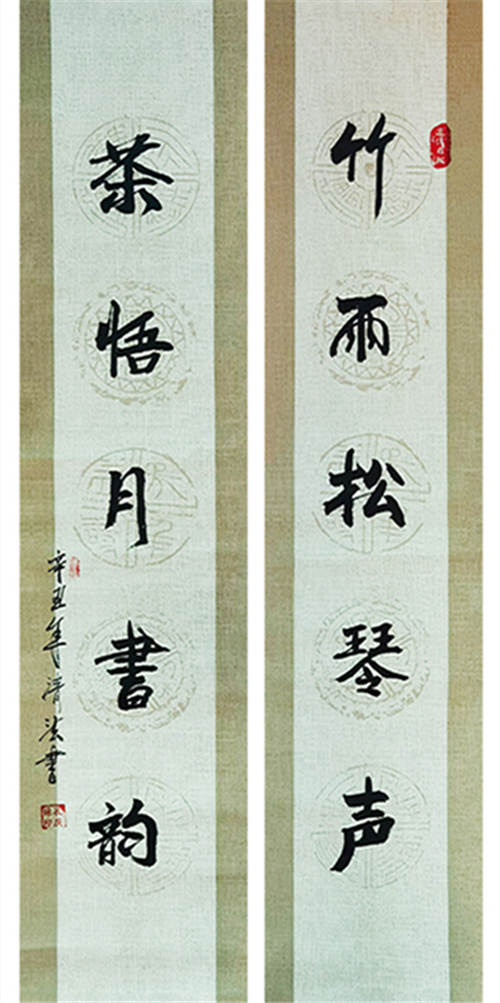 竹雨松琴声
茶悟月書韵
辛丑年清法書